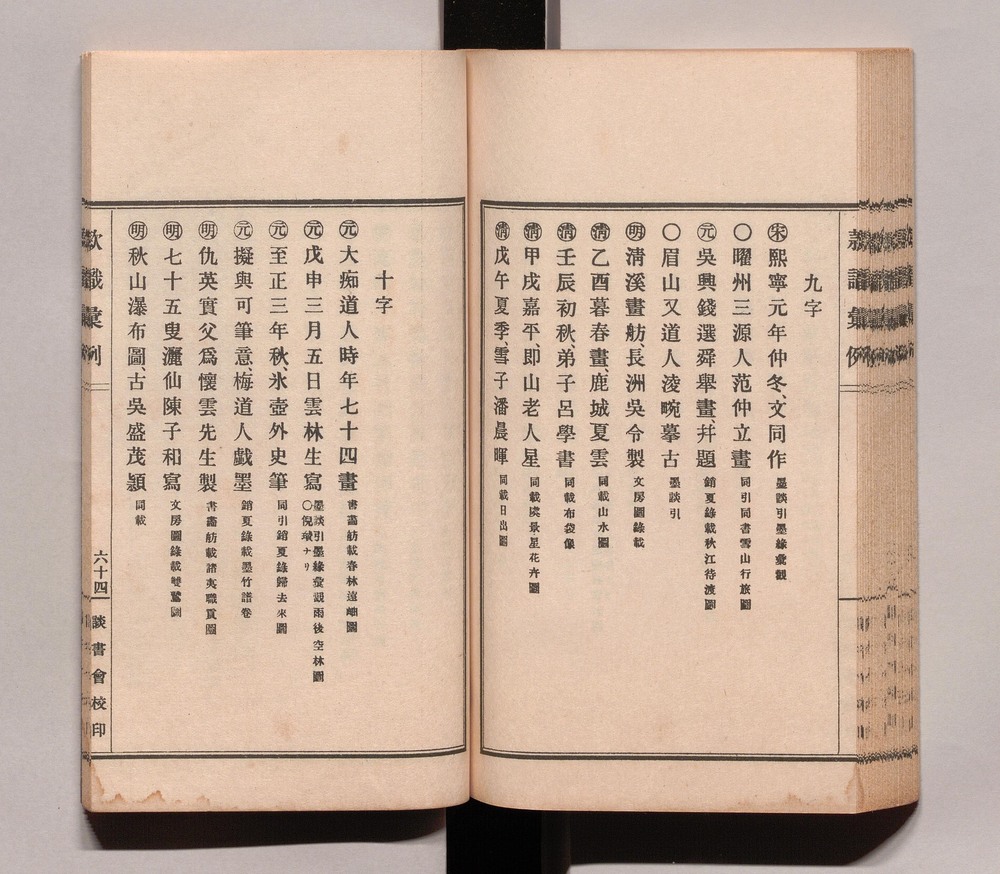 九字
㊀宋 熙寧元年仲冬、文同作 墨談引墨緣彙觀
〇曜州三源人范仲立畫 同引同書雪山行旅圖
元 吳興錢選舜舉畫、幷題 銷夏錄載秋江待渡圖
〇眉山又道人淩畹摹古 墨談引
明 淸溪畫舫、長洲吳令製 文房圖錄載
淸 乙酉暮春畫、鹿城夏雲 同載山水圖
淸 壬辰初秋、弟子呂學書 同載布袋像
淸 甲戌嘉平、即山老人星 同載虞景星花卉圖
淸 戊午夏季、雪子潘晨暉 同載日出圖
十字
元 大痴道人時年七十四畫 書畵舫載春林遠岫圖
元 戊申三月五日雲林生寫 墨談引墨緣彙觀雨後空林圖〇倪瓚ナリ
元 至正三年秋、氷壺外史筆 同引銷夏錄歸去來圖
元 擬與可筆意、梅道人戲墨 銷夏錄載墨竹譜卷
明 仇英實父爲懷雲先生製 書畵舫載諸夷職貢圖
明 七十五叟灑仙陳子和寫 文房圖錄載雙鷺圖
明 秋山瀑布圖、古吳盛茂潁 同載
款識彙例
六十四
談書會校印